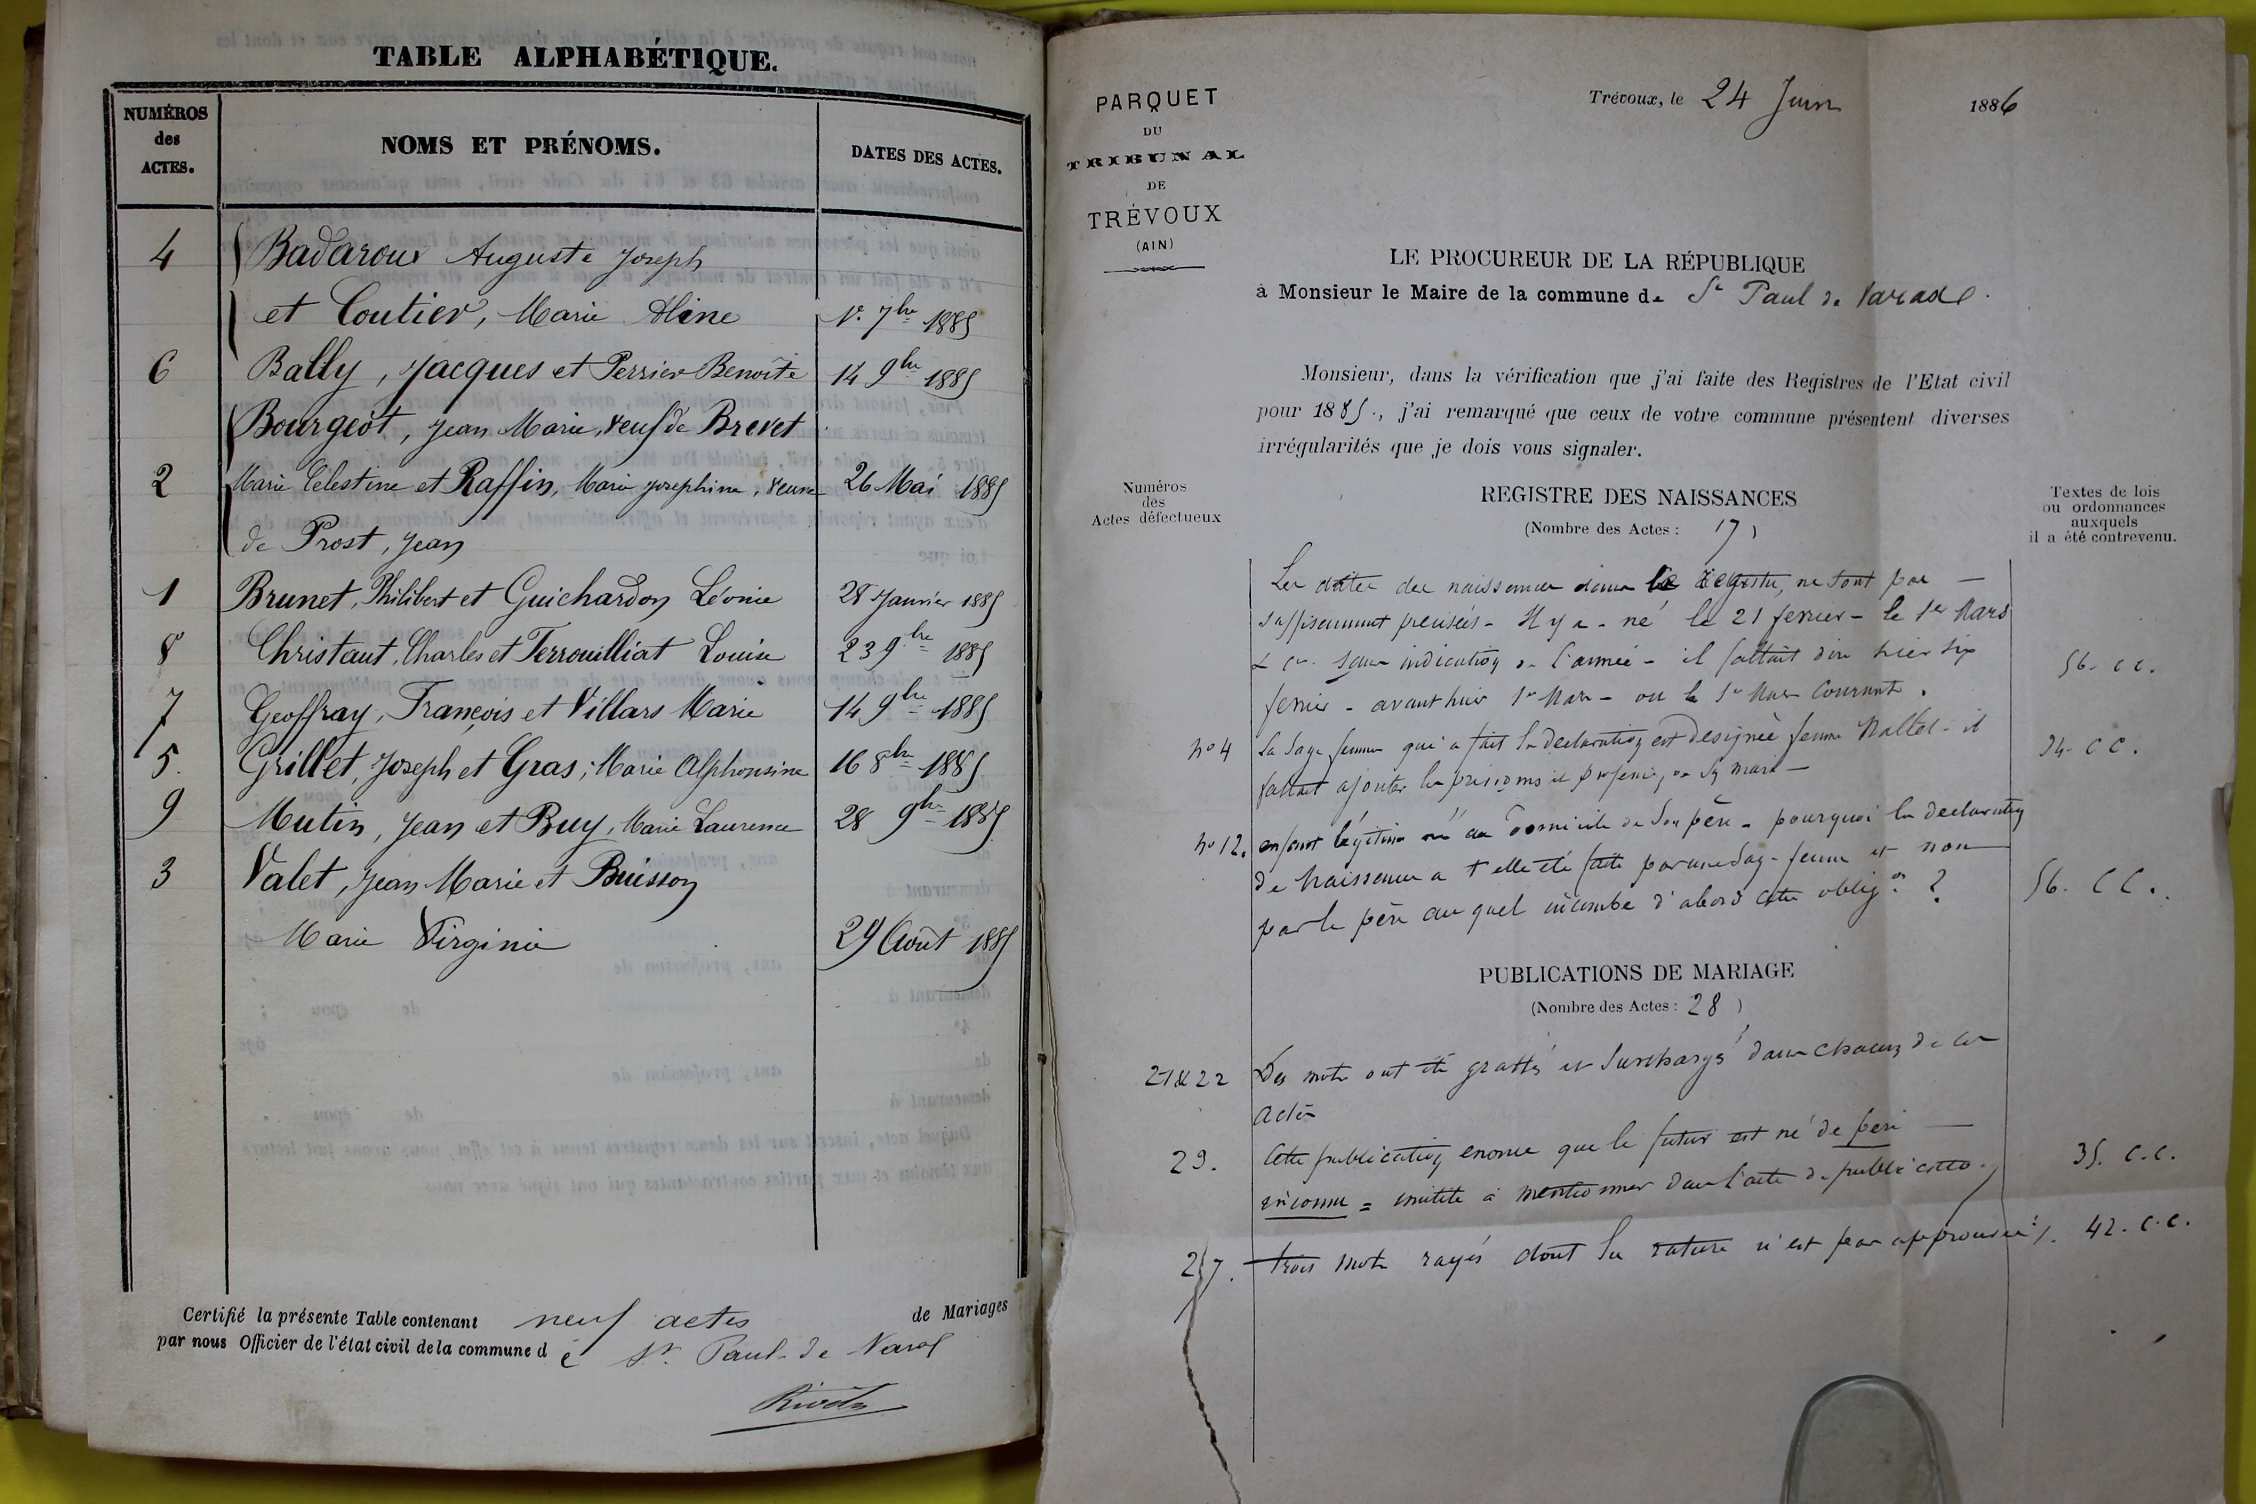 TABLE ALPHABÉTIQUE.
NUMÉROS des ACTES.
NOMS ET PRÉNOMS.
DATES DES ACTES.
4 Badaroux Auguste Joseph
et Coutier, Marie Aline 1er 7bre 1885
6 Bally, Jacques et Perrier Benoîte 14 9bre 1885
Bourgeot, Jean Marie, veuf de Brevet
2 Marie Célestine et Raffin, Marie Josephine, veuve 26 Mai 1885
de Prost, Jean
1 Brunet, Philibert et Guichardon Léonie 28 Janvier 1885
8 Christaut, Charles et Ferrouilliat Louise 23 9bre 1885
7 Geoffray, François et Villars Marie 14 9bre 1885
5. Grillet, Joseph et Gras, Marie Alphonsine 16 8bre 1885
9 Mutin, Jean et Buy, Marie Laurence 28 9bre 1885
3 Valet, Jean Marie et Buisson
Marie Virginie 29 Août 1885
Certifié la présente Table contenant neuf actes de Mariages
par nous Officier de l'état civil de la commune de St Paul de Varax
PARQUET
DU
TRIBUNAL
DE
TRÉVOUX
(AIN)
Trévoux, le 24 Juin 1886
LE PROCUREUR DE LA RÉPUBLIQUE
à Monsieur le Maire de la commune de St Paul de Varax
Monsieur, dans la vérification que j'ai faite des Registres de l'Etat civil
pour 1885., j'ai remarqué que ceux de votre commune présentent diverses
irrégularités que je dois vous signaler.
Numéros
des
Actes défectueux
REGISTRE DES NAISSANCES
(Nombre des Actes : 17)
Textes de lois
ou ordonnances
auxquels
il a été contrevenu.
Les dates des naissances dans le registre, ne sont pas
suffisamment précisées - Il y a - né le 21 fevrier - le 1er Mars
sans indication de l'année - il fallait dire hier six 56. c c.
fevrier - avant hier 1er Mars - ou le 1er Mars courant.
no 4 La sage femme qui a fait la declaration est designée femme Mallet - il 34. c c.
fallait ajouter les prénoms et profession de son mari -
no 12. enfant légitime né au domicile de son père - pourquoi la declaration
de naissance a t elle été faite par une sage-femme et non
par le père auquel incombe d'abord cette obligon ? 56. C C.
PUBLICATIONS DE MARIAGE
(Nombre des Actes : 28)
21 & 22 Des mots ont été grattés et surchargés dans chacun de ces
actes
29. Cette publication enonce que le futur est né de père
inconnu = inutile à mentionner dans l'acte de publication. 35. c.c.
27. trois mots rayés dont la rature n'est pas approuvée. 42. c.c.